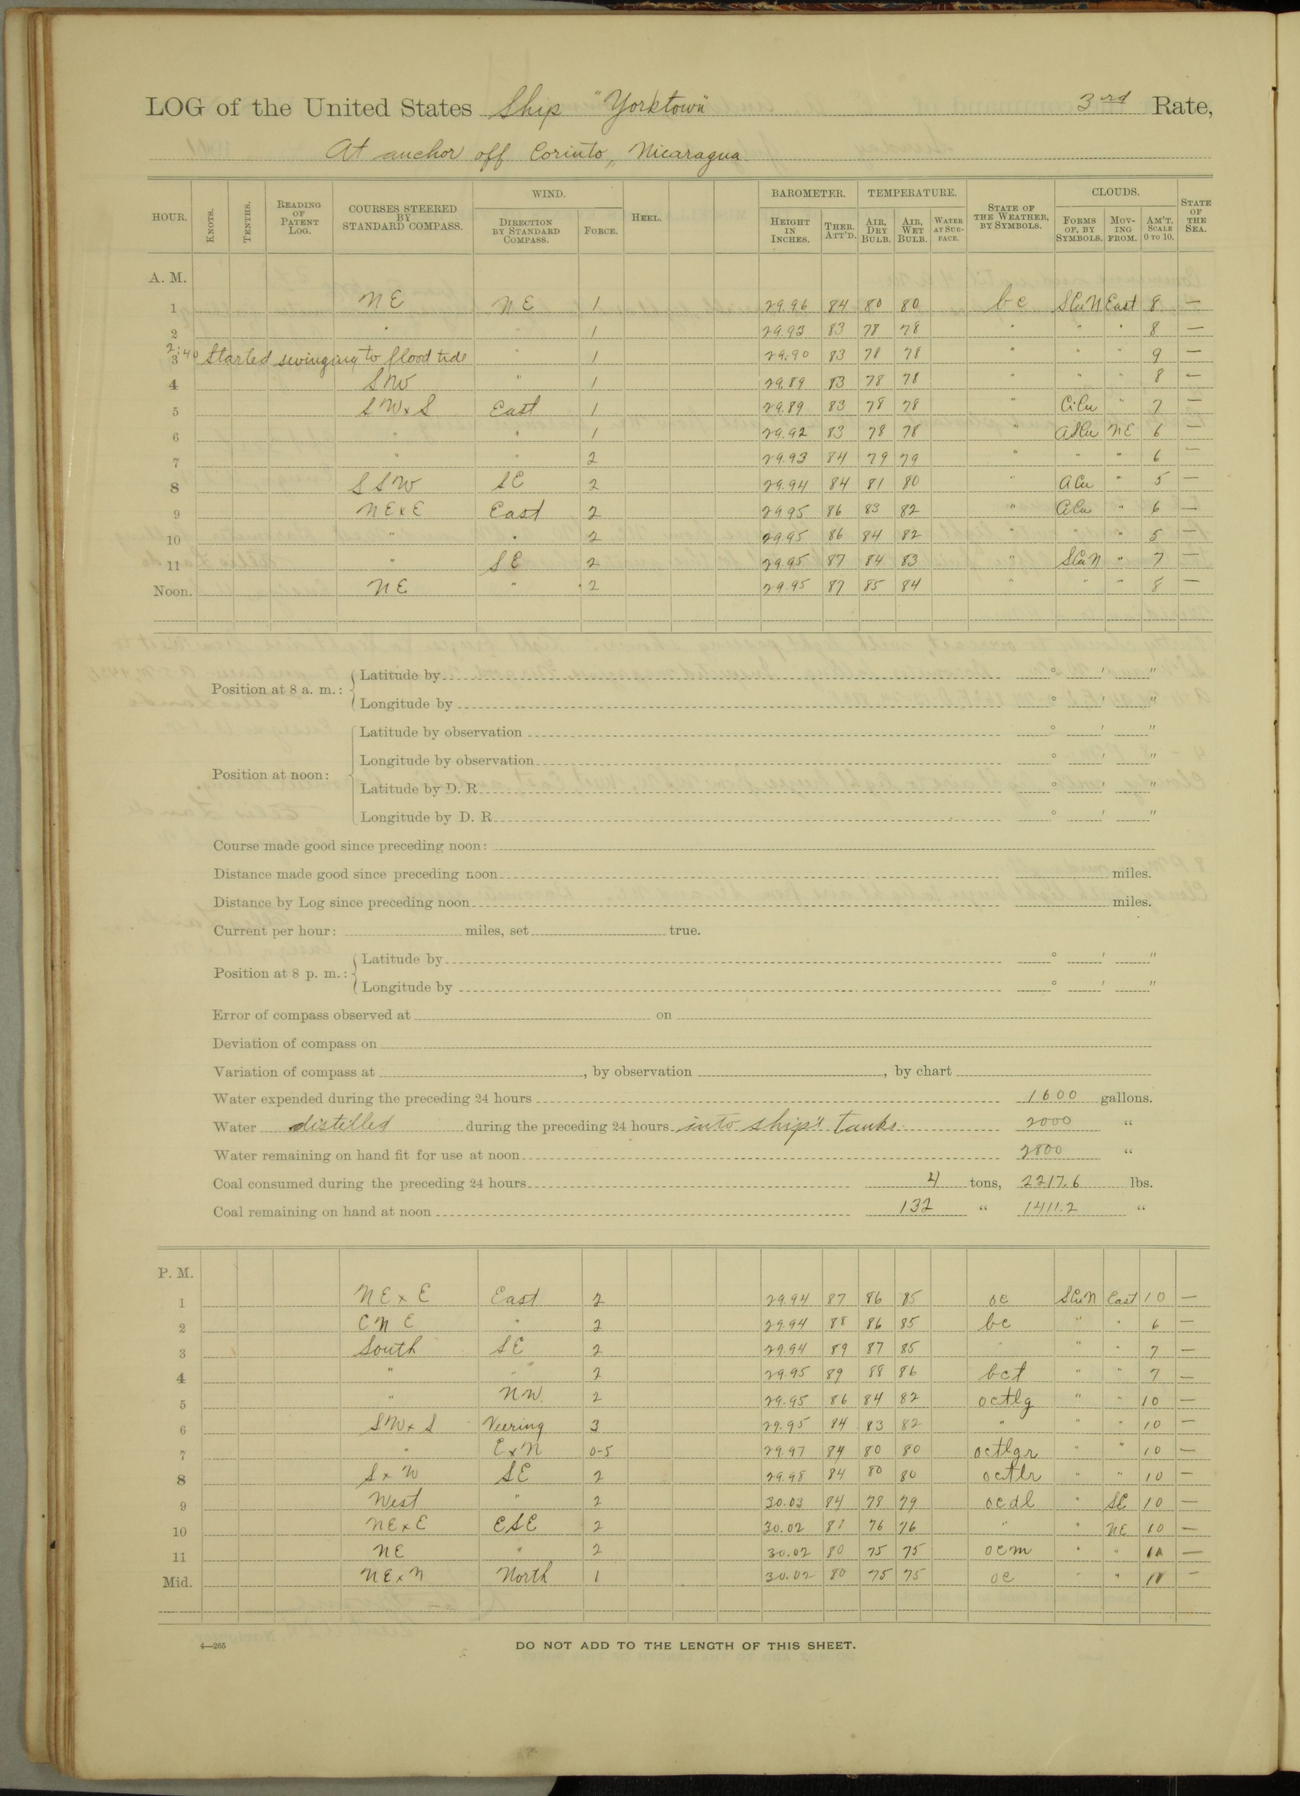 LOG of the United States Ship "Yorktown" 3rd Rate,
At anchor off Corinto, Nicaragua
HOUR. KNOTS. TENTHS. READING OF PATENT LOG. COURSES STEERED BY STANDARD COMPASS. WIND. DIRECTION BY STANDARD COMPASS. FORCE. HEEL. BAROMETER. HEIGHT IN INCHES. THER. ATT'D. TEMPERATURE. AIR, DRY BULB. AIR, WET BULB. WATER AT SURFACE. STATE OF THE WEATHER, BY SYMBOLS. CLOUDS. FORMS OF, BY SYMBOLS. MOVING FROM. AM'T. SCALE 0 TO 10. STATE OF THE SEA.
A. M.
1 NE NE 1 29.96 84 80 80 bc SCuN East 8 —
2 " " 1 29.93 83 78 78 " " " 8 —
2:40 Started swinging to flood tide
3 " 1 29.90 83 78 78 " " " 9 —
4 SW " 1 29.89 83 78 78 " " " 8 —
5 SWxS East 1 29.89 83 78 78 " CiCu " 7 —
6 " " 1 29.92 83 78 78 " ASCu NE 6 —
7 " " 2 29.93 84 79 79 " " " 6 —
8 SSW SE 2 29.94 84 81 80 " ACu " 5 —
9 NExE East 2 29.95 86 83 82 " CiCu " 6 —
10 " " 2 29.95 86 84 82 " " " 5 —
11 " SE 2 29.95 87 84 83 " SCuN " 7 —
Noon. NE " 2 29.95 87 85 84 " " " 8 —
Position at 8 a. m.: Latitude by ° ' "
Longitude by ° ' "
Position at noon: Latitude by observation ° ' "
Longitude by observation ° ' "
Latitude by D. R. ° ' "
Longitude by D. R. ° ' "
Course made good since preceding noon:
Distance made good since preceding noon miles.
Distance by Log since preceding noon miles.
Current per hour: miles, set true.
Position at 8 p. m.: Latitude by ° ' "
Longitude by ° ' "
Error of compass observed at on
Deviation of compass on
Variation of compass at , by observation , by chart
Water expended during the preceding 24 hours 1600 gallons.
Water distilled during the preceding 24 hours into ship's tanks 2000 "
Water remaining on hand fit for use at noon 2800 "
Coal consumed during the preceding 24 hours 4 tons, 2217.6 lbs.
Coal remaining on hand at noon 132 " 1411.2 "
P. M.
1 NExE East 2 29.94 87 86 85 oc SCuN East 10 —
2 ENE " 2 29.94 88 86 85 bc " " 6 —
3 South SE 2 29.94 89 87 85 " " " 7 —
4 " " 2 29.95 89 88 86 bct " " 7 —
5 " NW 2 29.95 86 84 82 octlg " " 10 —
6 SWxS Veering 3 29.95 84 83 82 " " " 10 —
7 " ExN 0-5 29.97 84 80 80 octlgr " " 10 —
8 SxW SE 2 29.98 84 80 80 octlr " " 10 —
9 West " 2 30.03 84 78 79 ocdl " SE 10 —
10 NExE ESE 2 30.02 81 76 76 " " NE 10 —
11 NE " 2 30.02 80 75 75 ocm " " 10 —
Mid. NExN North 1 30.02 80 75 75 oc " " 10 —
4—265 DO NOT ADD TO THE LENGTH OF THIS SHEET.